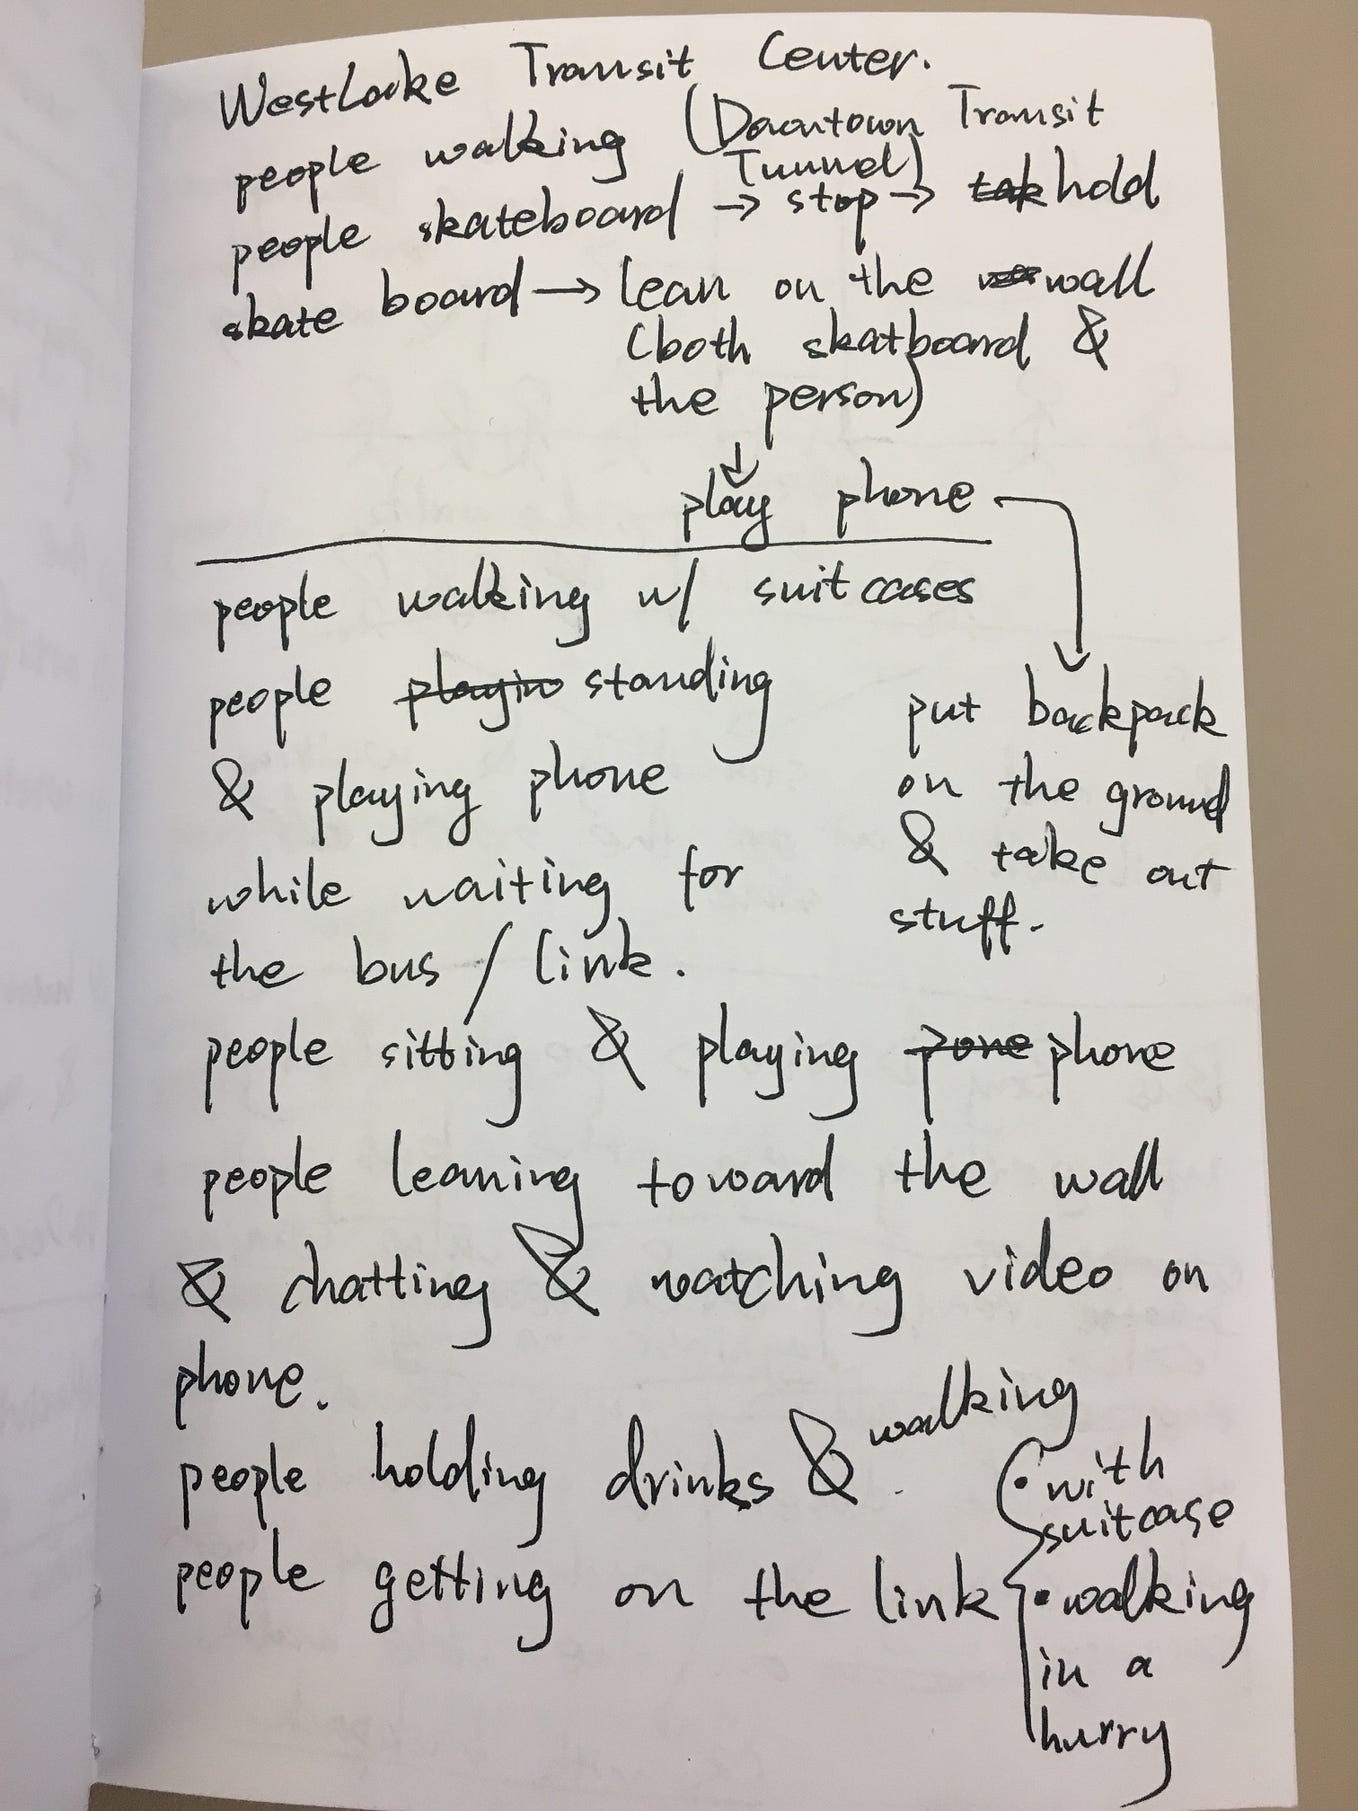 WestLake Transit Center.
people walking (Downtown Transit
Tunnel)
people skateboard → stop → tak hold
skate board → lean on the wall
(both skatboard &
the person)
↓
play phone
people walking w/ suitcases
people playin standing
& playing phone
while waiting for
the bus / link.
put backpack
on the ground
& take out
stuff.
people sitting & playing pone phone
people leaning toward the wall
& chatting & watching video on
phone.
people holding drinks & walking
people getting on the link
• with
suitcase
• walking
in a
hurry